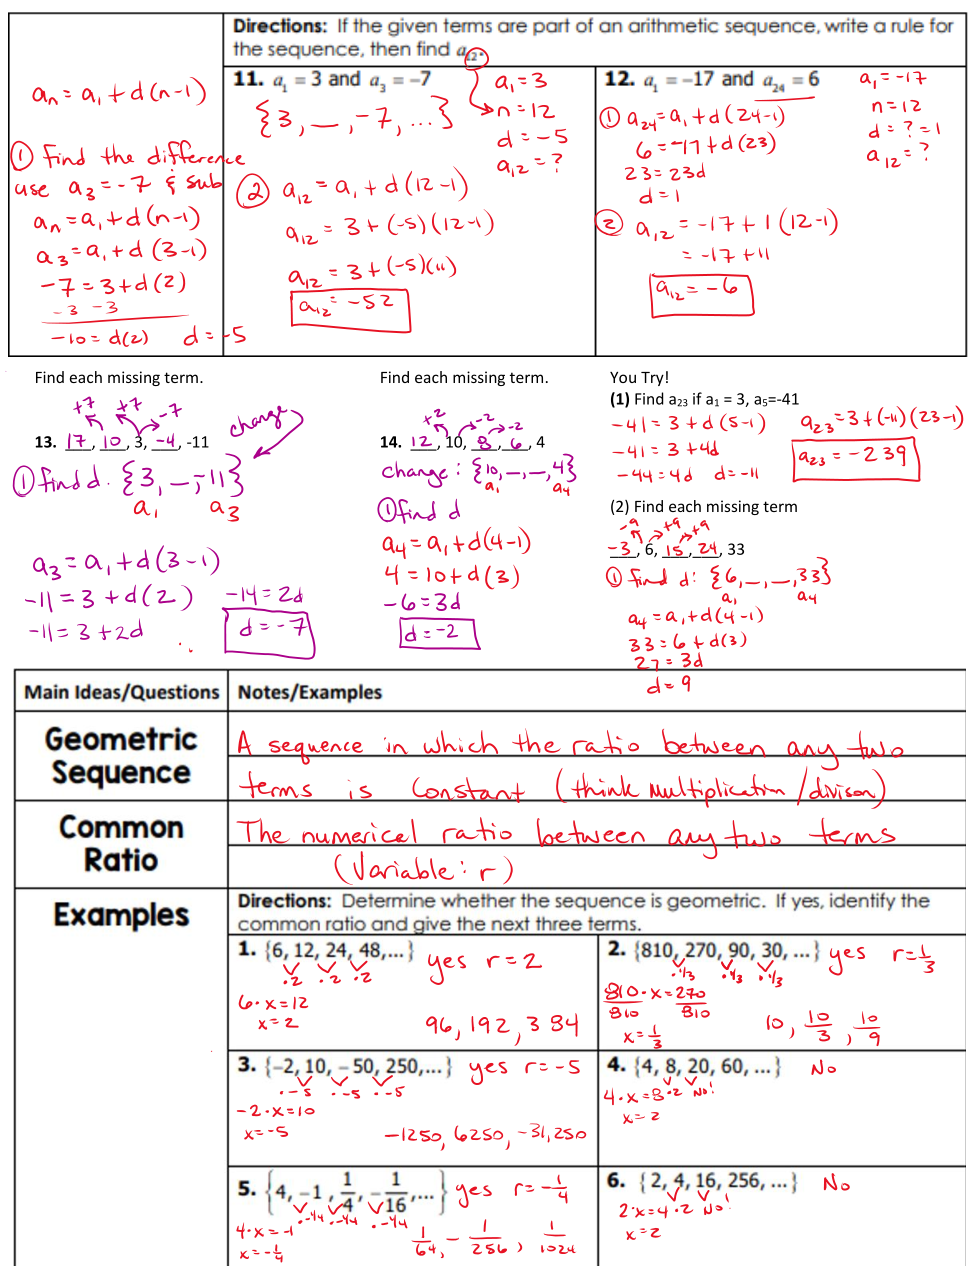 Directions: If the given terms are part of an arithmetic sequence, write a rule for
the sequence, then find a₁₂.
aₙ = a₁ + d(n-1)
① Find the difference
use a₃ = -7 & sub
aₙ = a₁ + d(n-1)
a₃ = a₁ + d(3-1)
-7 = 3 + d(2)
-3 -3
-10 = d(2) d = -5
11. a₁ = 3 and a₃ = -7
{3, _, -7, ...}
a₁ = 3
n = 12
d = -5
a₁₂ = ?
② a₁₂ = a₁ + d(12-1)
a₁₂ = 3 + (-5)(12-1)
a₁₂ = 3 + (-5)(11)
a₁₂ = -52
12. a₁ = -17 and a₂₄ = 6
a₁ = -17
n = 12
d = ? = 1
a₁₂ = ?
① a₂₄ = a₁ + d(24-1)
6 = -17 + d(23)
23 = 23d
d = 1
② a₁₂ = -17 + 1(12-1)
= -17 + 11
a₁₂ = -6
Find each missing term.
+7 +7 -7
13. 17, 10, 3, -4, -11
change
① find d. {3, _, -11}
a₁ a₃
a₃ = a₁ + d(3-1)
-11 = 3 + d(2)
-11 = 3 + 2d
-14 = 2d
d = -7
Find each missing term.
+2 -2 -2
14. 12, 10, 8, 6, 4
change: {10, _, _, 4}
a₁ a₄
① find d
a₄ = a₁ + d(4-1)
4 = 10 + d(3)
-6 = 3d
d = -2
You Try!
(1) Find a₂₃ if a₁ = 3, a₅=-41
-41 = 3 + d(5-1)
-41 = 3 + 4d
-44 = 4d d = -11
a₂₃ = 3 + (-11)(23-1)
a₂₃ = -239
(2) Find each missing term
-9 +9 +9
-3, 6, 15, 24, 33
① find d: {6, _, _, 33}
a₁ a₄
a₄ = a₁ + d(4-1)
33 = 6 + d(3)
27 = 3d
d = 9
Main Ideas/Questions Notes/Examples
Geometric
Sequence
A sequence in which the ratio between any two
terms is constant (think multiplication/divison)
Common
Ratio
The numerical ratio between any two terms
(Variable: r)
Examples
Directions: Determine whether the sequence is geometric. If yes, identify the
common ratio and give the next three terms.
1. {6, 12, 24, 48,...} yes r = 2
·2 ·2 ·2
6·x = 12
x = 2
96, 192, 384
2. {810, 270, 90, 30, ...} yes r = 1/3
·1/3 ·1/3 ·1/3
810·x = 270
810 810
x = 1/3
10, 10/3, 10/9
3. {-2, 10, -50, 250,...} yes r = -5
·-5 ·-5 ·-5
-2·x = 10
x = -5
-1250, 6250, -31,250
4. {4, 8, 20, 60, ...} No
4·x = 8 ·2 No!
x = 2
5. {4, -1, 1/4, -1/16,...} yes r = -1/4
·-1/4 ·-1/4 ·-1/4
4·x = -1
x = -1/4
1/64, -1/256, 1/1024
6. {2, 4, 16, 256, ...} No
2·x = 4 ·2 No!
x = 2